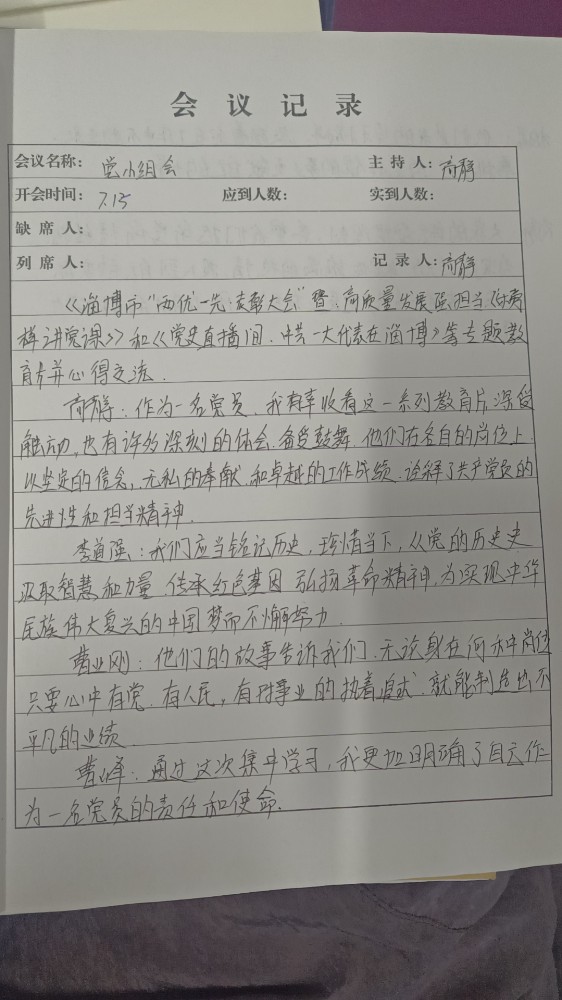 会议记录
会议名称：党小组会 主持人：商静
开会时间：7.15 应到人数： 实到人数：
缺席人：
列席人： 记录人：商静
《淄博市“两优一先·表彰大会”暨·高质量发展强担当《榜
样讲党课》和《党史直播间·中共一大代表在淄博》等专题教
育片并心得交流.
商静：作为一名党员，我有幸收看这一系列教育片，深受
触动，也有许多深刻的体会.备受鼓舞.他们在各自的岗位上
以坚定的信念，无私的奉献和卓越的工作成绩.诠释了共产党员的
先进性和担当精神.
李道强：我们应当铭记历史，珍惜当下，从党的历史史
汲取智慧和力量.传承红色基因 弘扬革命精神，为实现中华
民族伟大复兴的中国梦而不懈努力.
曹业刚：他们的故事告诉我们.无论身在何种岗位
只要心中有党.有人民，有对事业的执着追求.就能制造出不
平凡的业绩
曹峰：通过这次集中学习，我更加明确了自己作
为一名党员的责任和使命.